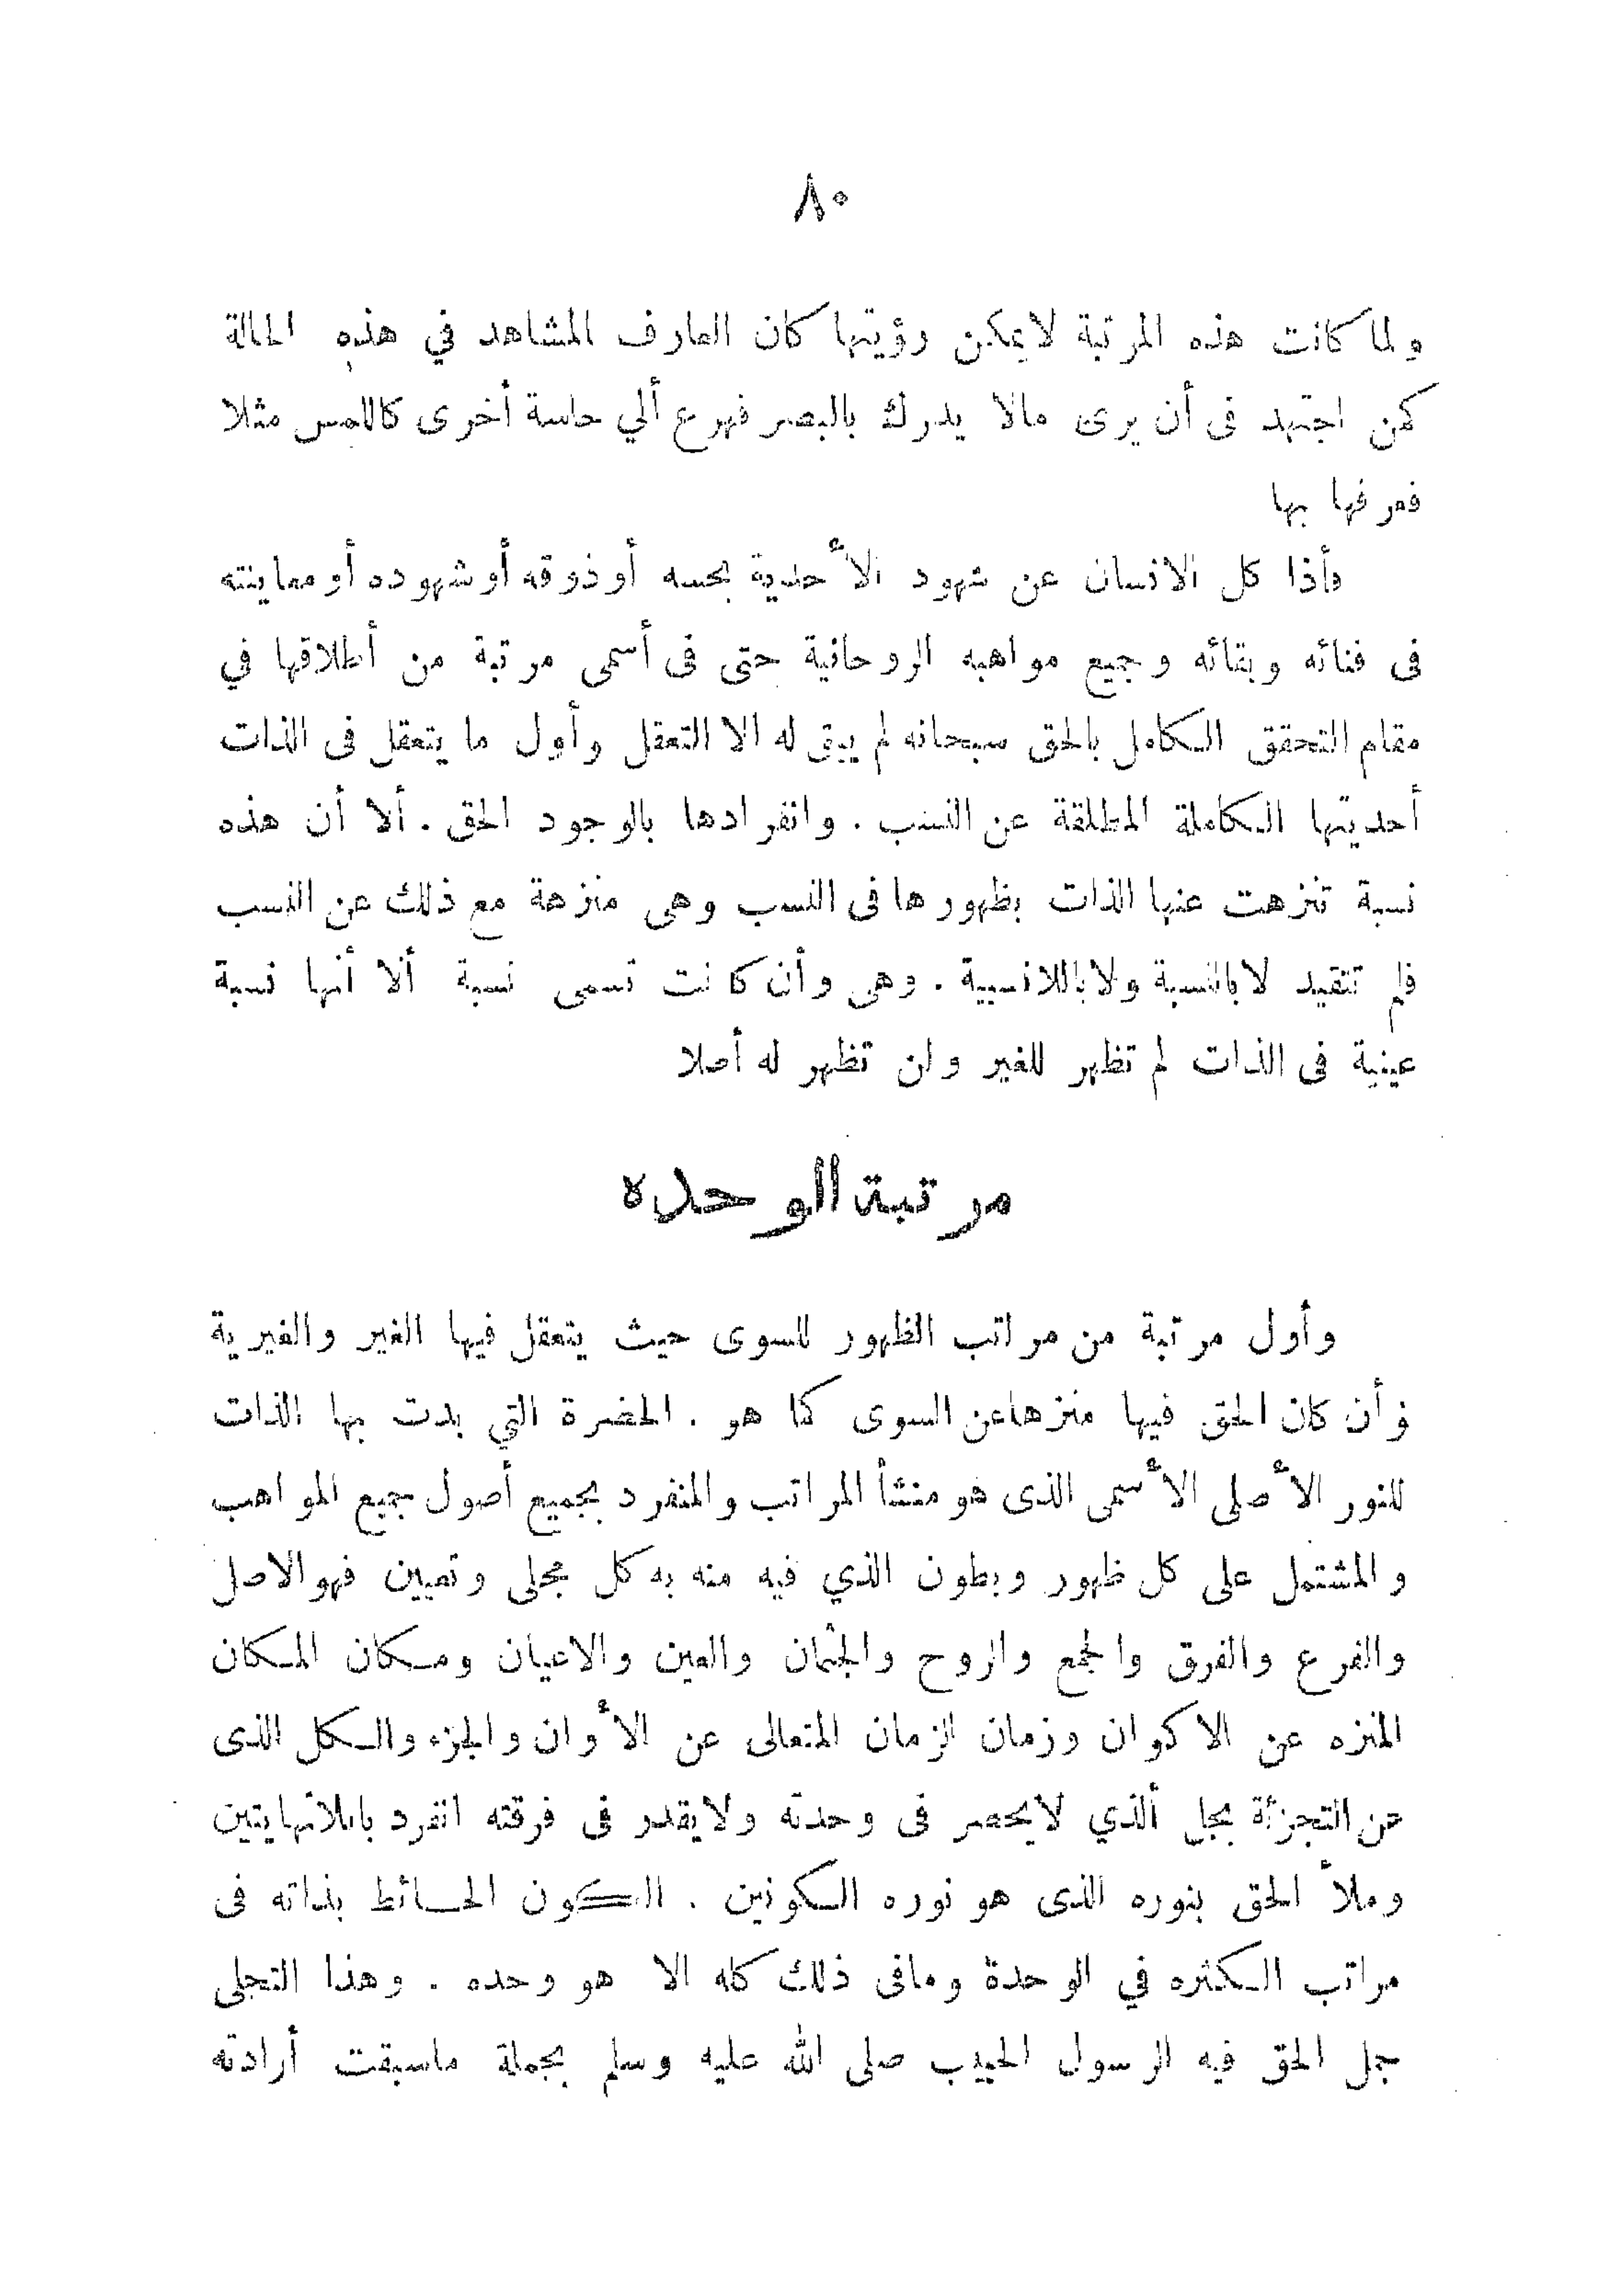 ٨٠
ولما كانت هذه المرتبة لايمكن رؤيتها كان العارف المشاهد في هذه الحالة
كمن اجتهد فى أن يرى مالا يدرك بالبصر فهرع ألي حاسة أخرى كاللمس مثلا
فعرفها بها
فأذا كل الانسان عن شهود الأحدية بحسه أو ذوقه أو شهوده أو معاينته
فى فنائه وبقائه وجميع مواهبه الروحانية حتى فى أسمى مرتبة من أطلاقها في
مقام التحقق الكامل بالحق سبحانه لم يبق له الا التعقل وأول ما يتعقل فى الذات
أحديتها الكاملة المطلقة عن النسب . وانفرادها بالوجود الحق . ألا أن هذه
نسبة تنزهت عنها الذات بظهورها فى النسب وهى منزهة مع ذلك عن النسب
فلم تتقيد لابالنسبة ولاباللانسبية . وهى وأن كانت تسمى نسبة ألا أنها نسبة
عينية فى الذات لم تظهر للغير ولن تظهر له أصلا
مرتبة الوحده
وأول مرتبة من مراتب الظهور للسوى حيث يتعقل فيها الغير والغيرية
وأن كان الحق فيها منزها عن السوى كما هو . الحضرة التي بدت بها الذات
للنور الأصلى الأسمى الذى هو منشأ المراتب والمنفرد بجميع أصول جميع المواهب
والمشتمل على كل ظهور وبطون الذي فيه منه به كل مجلى وتعيين فهو الاصل
والفرع والفرق والجمع والروح والجثمان والعين والاعيان ومكان المكان
المنزه عن الاكوان وزمان الزمان المتعالى عن الأوان والجزء والكل الذى
عن التجزئة يجل ألذي لايحصر فى وحدته ولايقدر فى فرقته انفرد باللانهايتين
وملأ الحق بنوره الذى هو نوره الكونين . الكون الحائط بذاته فى
مراتب الكثره في الوحدة ومافى ذلك كله الا هو وحده . وهذا التجلى
جمل الحق فيه الرسول الحبيب صلى الله عليه وسلم بجملة ماسبقت أرادته